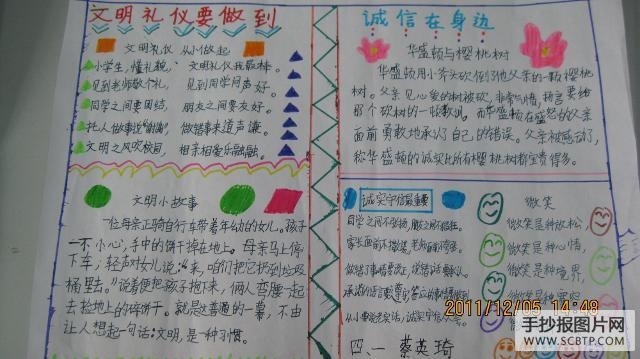 文明礼仪要做到
文明礼仪 从小做起
小学生,懂礼貌, 文明礼仪我最棒。
见到老师敬个礼, 见到同学问声好。
同学之间要团结, 朋友之间要友好。
托人做事说"谢谢", 做错事来道声谦。
文明之风吹校园, 相亲相爱乐融融。
文明小故事
一位母亲正骑自行车带着年幼的女儿。孩子
一不小心,手中的饼干掉在地上。母亲马上停
下车;轻声对女儿说:"来,咱们把它扔到垃圾
桶里去。"说着便把孩子抱下来,俩人弯腰一起
去捡地上的碎饼干。就是这普通的一幕,不由
让人想起一句话:文明,是一种习惯。
诚信在身边
华盛顿与樱桃树
华盛顿用小斧头砍倒了他父亲的一颗樱桃
树。父亲见心爱的树被砍,非常气愤,扬言要给
那个砍树的一顿教训。而华盛顿在盛怒的父亲
面前勇敢地承认了自己的错误。父亲被感动了,
称华盛顿的诚实比所有樱桃树都宝贵得多。
诚实守信最重要
同学之间不
家长面前不撒谎,
做错事情
承诺的
从小事
微笑
微笑是种放松,
微笑是种心情,
微笑是种境界,
微笑是种
四、一 蔡英琦
2011/12/05 14:48
手抄报图片网
WWW.SCBTP.COM